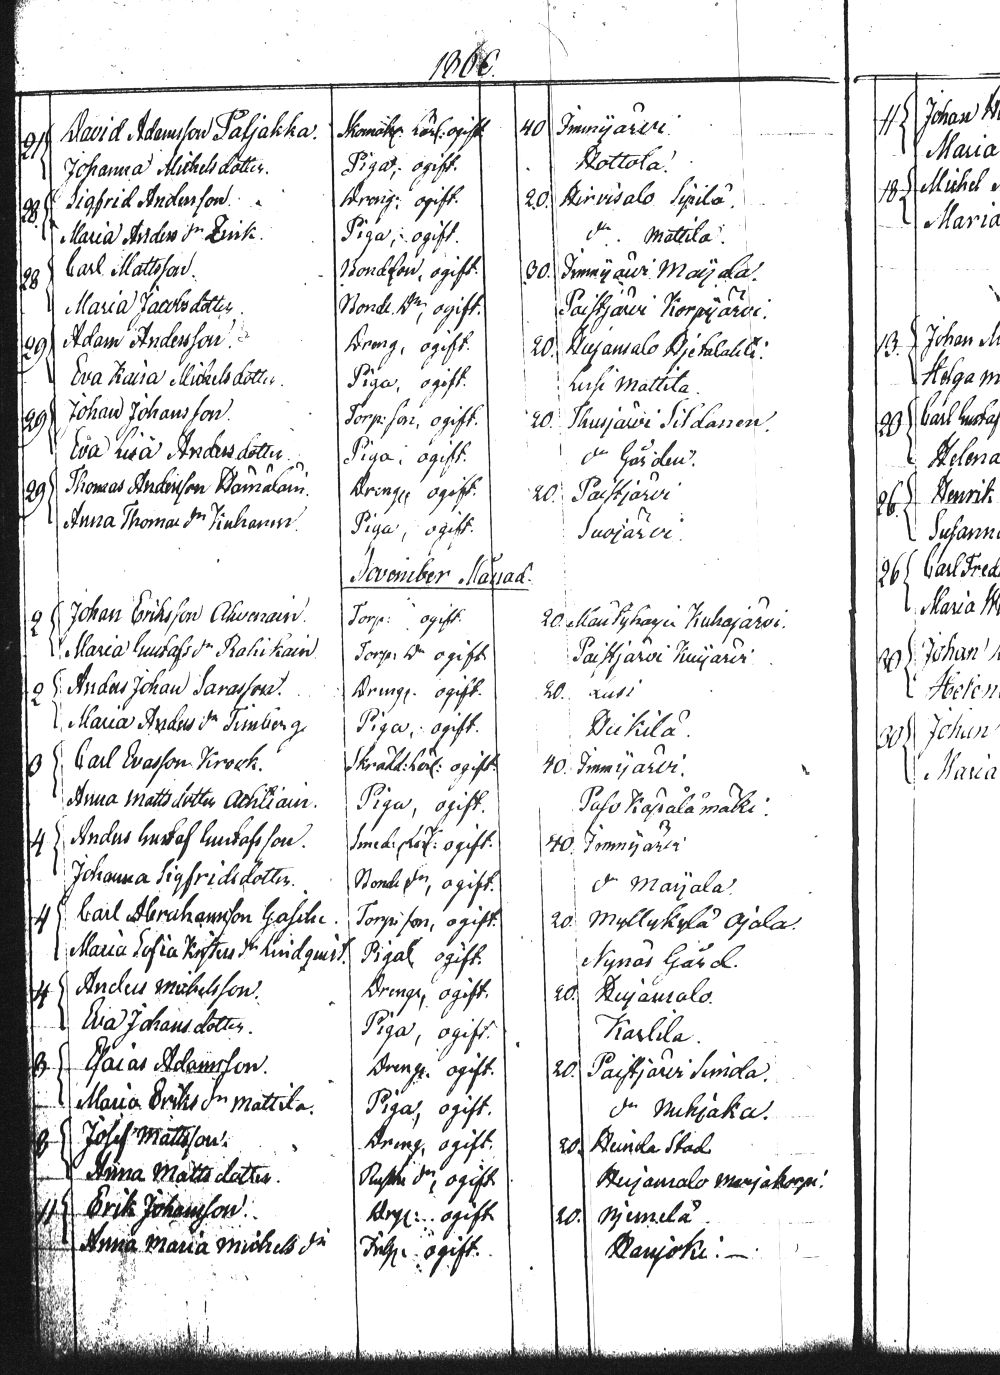 1866.
21 David Adamsson Paljakka. Skomak: Lärl: ogift 40 Immijärvi
Johanna Michelsdotter. Piga, ogift. Hottola.
28 Sigfrid Andersson. Dreng, ogift. 20. Hirvisalo Sipilä.
Maria Anders dr Zink. Piga, ogift. dr mattila.
28 Carl Mattsson. Bondeson, ogift. 30. Immijärvi Marjala.
Maria Jacobsdotter. Bonde dr, ogift. Paistjärvi Korpijärvi.
29 Adam Andersson. Dreng, ogift. 20. Heijansalo
Eva Kaisa Michelsdotter. Piga, ogift. Lusi Mattila
29 Johan Johansson. Torp: son, ogift. 20. Thusjärvi Sildanen.
Eva Lisa Andersdotter. Piga, ogift. dr Gården.
29 Thomas Andersson Hämäläin. Dreng, ogift. 20. Paistjärvi
Anna Thomas dr Kuhanen Piga, ogift. Suojärvi.
November Månad.
2 Johan Eriksson Ahvenain Torp: ogift. 20. Kuhajärvi.
Maria Gustafs dr Rahikain Torp. dr ogift Paistjärvi
2 Anders Johan Sarasson. Dreng, ogift. 20. Lusi
Maria Anders dr Timberg Piga, ogift. Heikilä.
3 Carl Evasson Krook. Skräd: Lärl: ogift. 40. Immijärvi.
Anna Mattsdotter Achtiain. Piga, ogift. Paso
4 Anders Gustaf Gustafsson. Smed: Lärl: ogift. 40. Immijärvi
Johanna Sigfridsdotter. Bonde dr, ogift. dr Marjala.
4 Carl Abrahamsson Torp: son, ogift. 20. Myllykylä Ojala.
Maria Sofia dr Lindqvist. Piga, ogift. Nynäs Gård.
4 Anders Michelsson. Dreng, ogift. 20. Heijansalo.
Eva Johansdotter. Piga, ogift. Karlila.
8 Esaias Adamsson. Dreng, ogift. 20. Paistjärvi Simola.
Maria Eriks dr Mattila. Piga, ogift. dr Nuhjaka.
8 Josef Mattsson. Dreng, ogift. 20. Heinola Stad
Anna Mattsdotter. dr, ogift Heijansalo Marjokorpi.
11 Erik Johansson. ogift 20. Niemelä
Anna Maria Michels dr Inhys: ogift. Harjoki. —
11 Johan
Maria
18 Michel
Maria
13. Johan
Helga
20 Carl Gustaf
Helena
26 Henrik
Susanna
26 Carl Fred
Maria
30 Johan
Helena
30 Johan
Maria